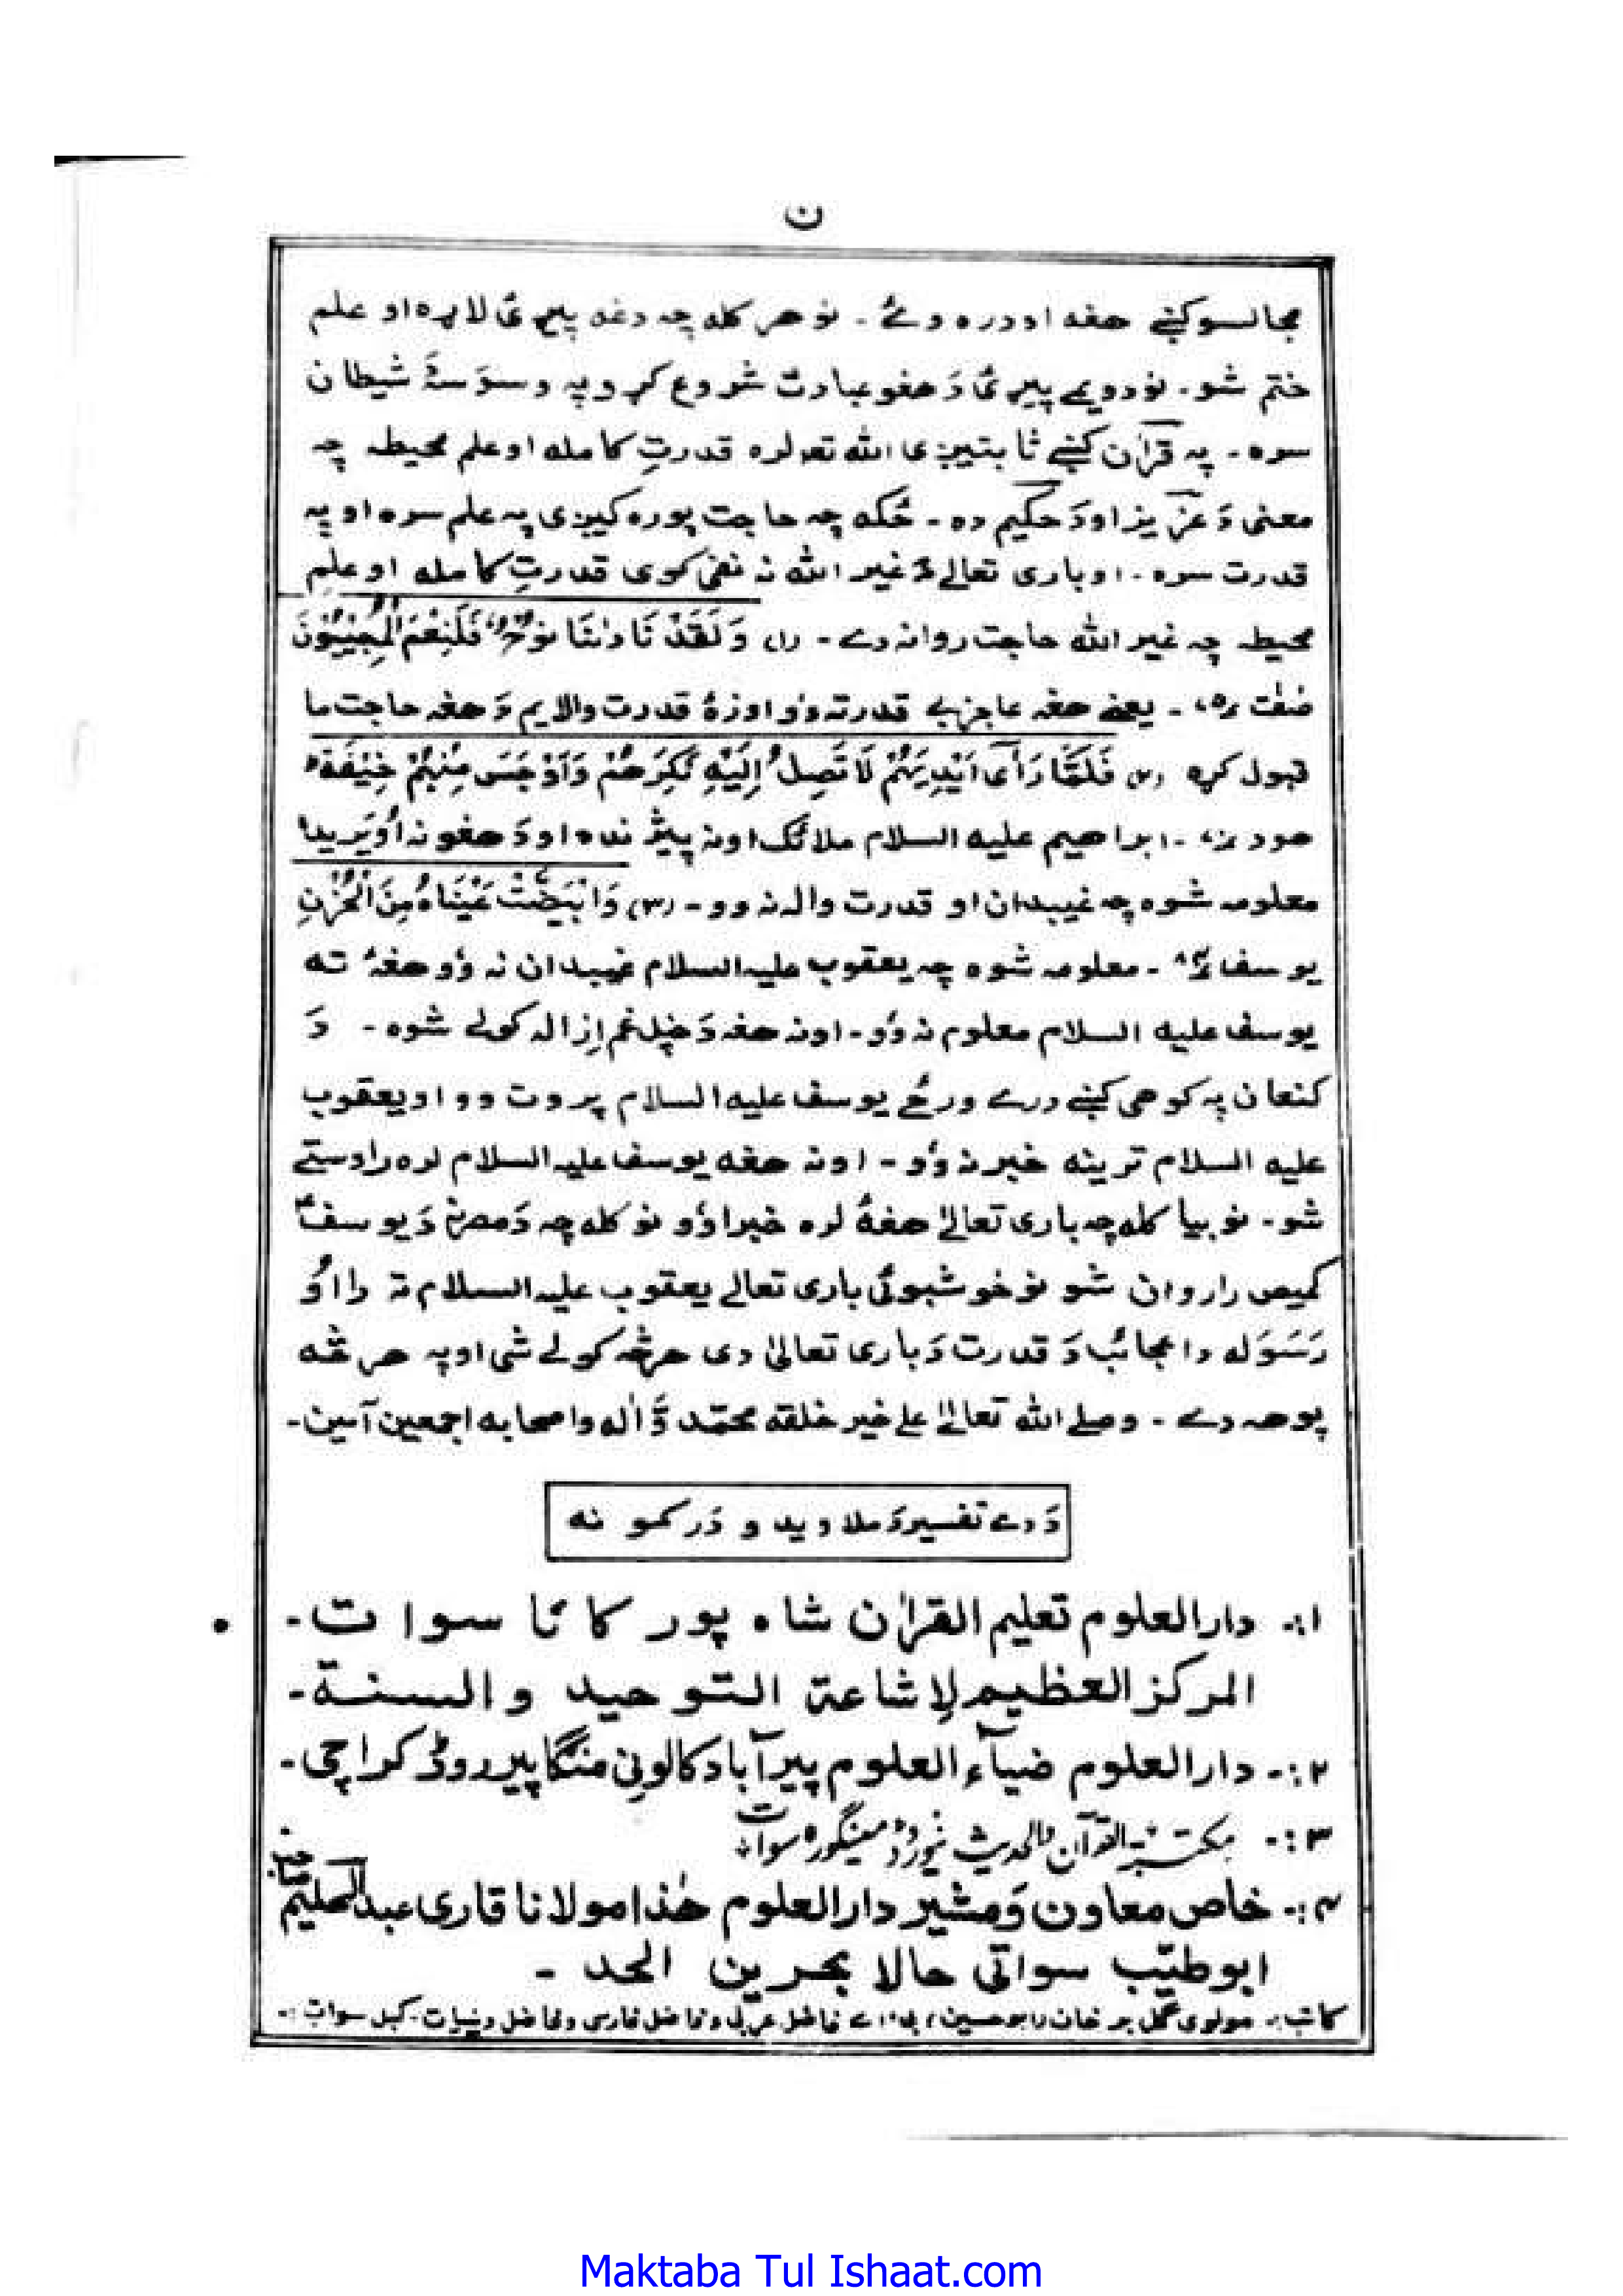 ن
مجالسو کښے هغه اودره وے ۔ نو هر کله چه دغه پیړۍ لاړه او علم
ختم شو ۔ نو دویمے پیړۍ دَ هغو عبادت شروع کړو په وسوسۀ شیطان
سره ۔ په قرآن کښے ثابتیږی الله تعہ لره قدرتِ کامله او علم محیطہ چه
معنیٰ دَ عزیز او دَ حکیم ده ۔ ځکه چه حاجت پوره کیږی په علم سره او په
قدرت سره ۔ او باری تعالےٰ دَ غیر الله نہ نفی کوی قدرتِ کامله او علم
محیطہ چه غیر الله حاجت روا نہ دے ۔ (۱) وَلَقَدْ نَادٰىنَا نُوْحٌ فَلَنِعْمَ الْمُجِيْبُوْنَ
صٰفٰت ۷۵ ۔ یعنے هغه عاجز بے قدرته وو او زۀ قدرت والا یم دَ هغه حاجت ما
قبول کړه (۲) فَلَمَّا رَاٰۤى اَيْدِيَهُمْ لَا تَصِلُ اِلَيْهِ نَكِرَهُمْ وَاَوْجَسَ مِنْهُمْ خِيْفَةً ؕ
هود ۷۰ ۔ ابراهیم علیه السلام ملائک او نہ پیژندہ او دَ هغو نہ اُویریدا
معلومہ شوه چه غیبدان او قدرت والہ نہ وو ۔ (۳) وَابْيَضَّتْ عَيْنَاهُ مِنَ الْحُزْنِ
یوسف ۸۴ ۔ معلومہ شوه چه یعقوب علیہ السلام غیبدان نہ وُو هغهٔ ته
یوسف علیه السلام معلوم نہ وُو ۔ او نہ هغه دَ خپل غم ازالہ کولے شوه ۔ دَ
کنعان په کوهی کښے درے ورځے یوسف علیه السلام پروت وو او یعقوب
علیه السلام ترینه خبر نہ وُو ۔ او نہ هغه یوسف علیہ السلام لره راوستے
شو ۔ نو بیا کله چه باری تعالیٰ هغهٔ لره خبراوُو نو کله چه دَ مصر نہ دَ یوسفؑ
کمیص را روان شو نو خوشبوئی باری تعالےٰ یعقوب علیہ السلام تہ را اُو
رَسَوَله دا عجائب دَ قدرت دَ باری تعالیٰ دی هر څه کولے شی او په هر څه
پوهہ دے ۔ وصلے الله تعالیٰ علےٰ خیر خلقه محمّد وّاٰله واصحابه اجمعین آمین ۔
دَ دے تفسیر دَ ملاویدو دَرکمونه
۱:۔ دارالعلوم تعلیم القراٰن شاہ پور کانا سوات ۔
المرکز العظیم لِاشاعة التوحید والسنة ۔
۲:۔ دارالعلوم ضیآء العلوم پیرآباد کالونی منگا پیر روڈ کراچی ۔
۳:۔ مکتبة القرآن والحدیث نیوروڈ مینگورہ سوات
۴:۔ خاص معاون وَ مشیر دارالعلوم هٰذا مولانا قاری عبدالحلیم
ابو طیّب سواتی حالا بحرین الحد ۔
کاتب:۔ مولوی گل بر خان رابو حسین، بی اے فاضل عربی و فاضل فارسی و فاضل دینیات ۔ کبل سوات :۔
Maktaba Tul Ishaat.com